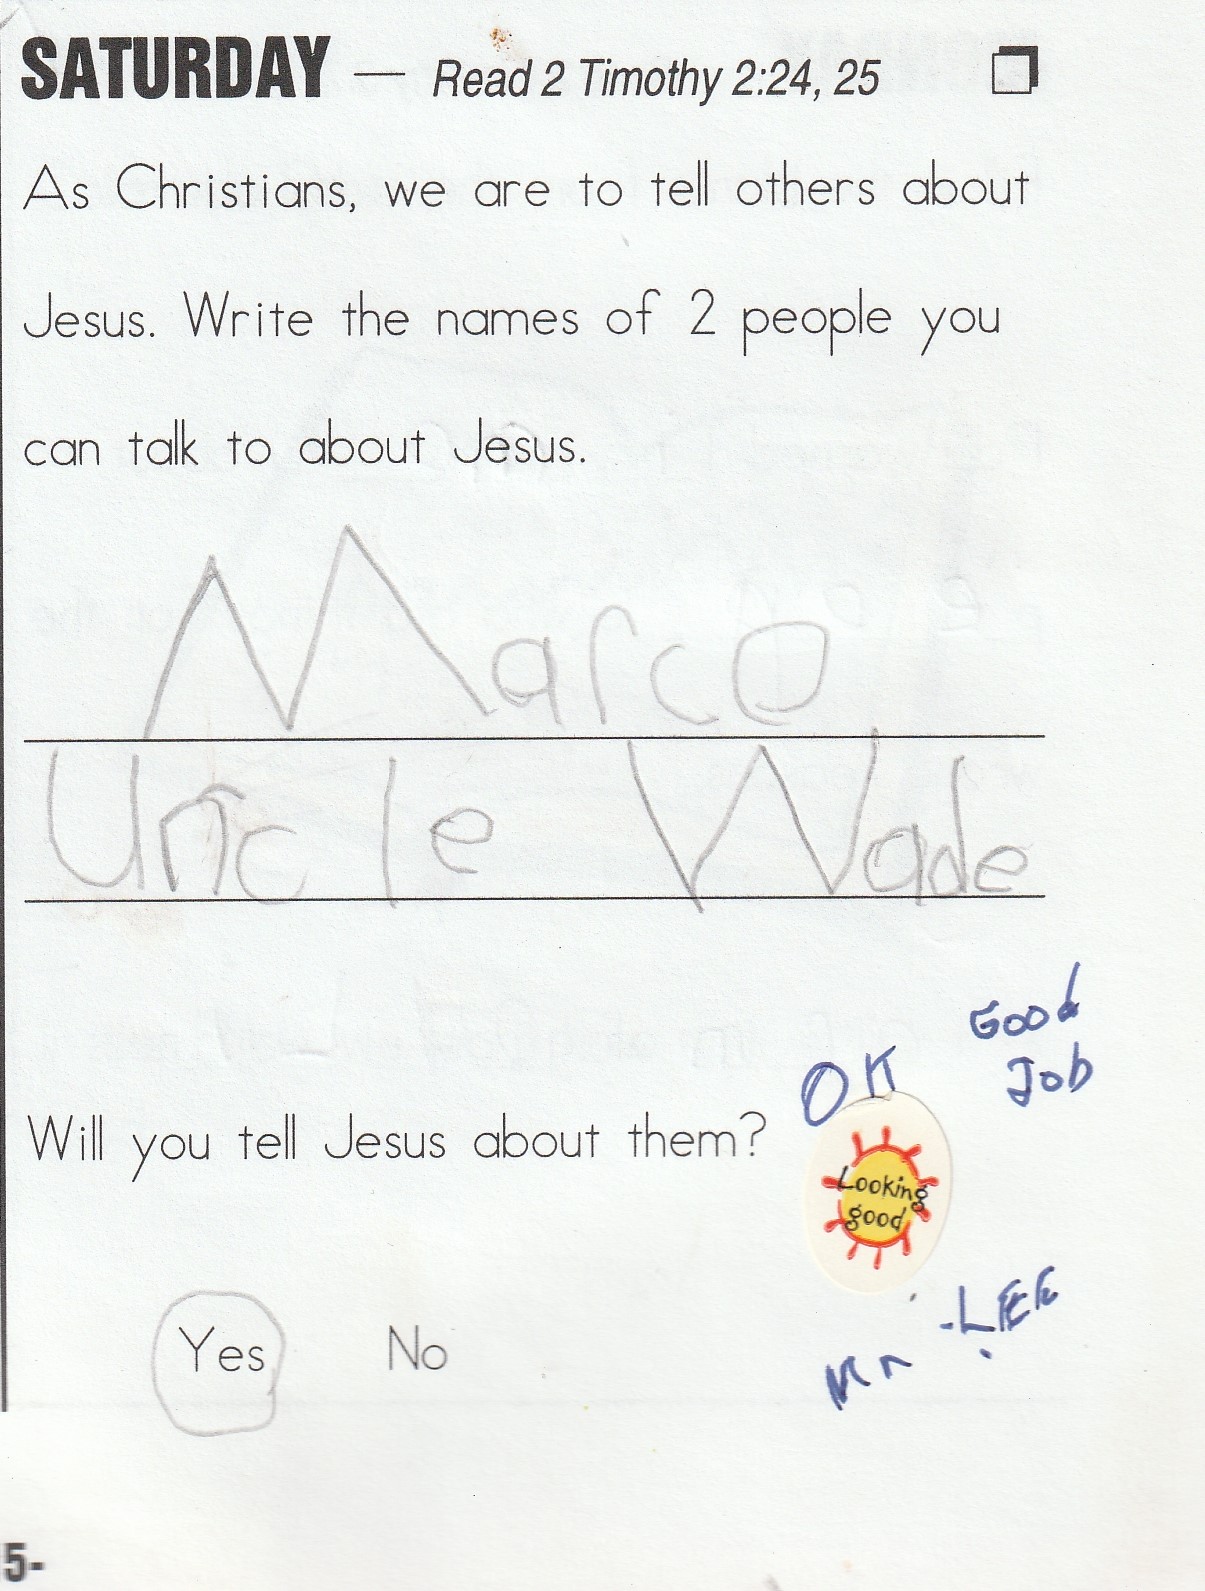 SATURDAY — Read 2 Timothy 2:24, 25
As Christians, we are to tell others about
Jesus. Write the names of 2 people you
can talk to about Jesus.
Marco
Uncle Wade
Good
Job
OK
Will you tell Jesus about them?
Looking
good
Yes No
Mr. LEE
5-